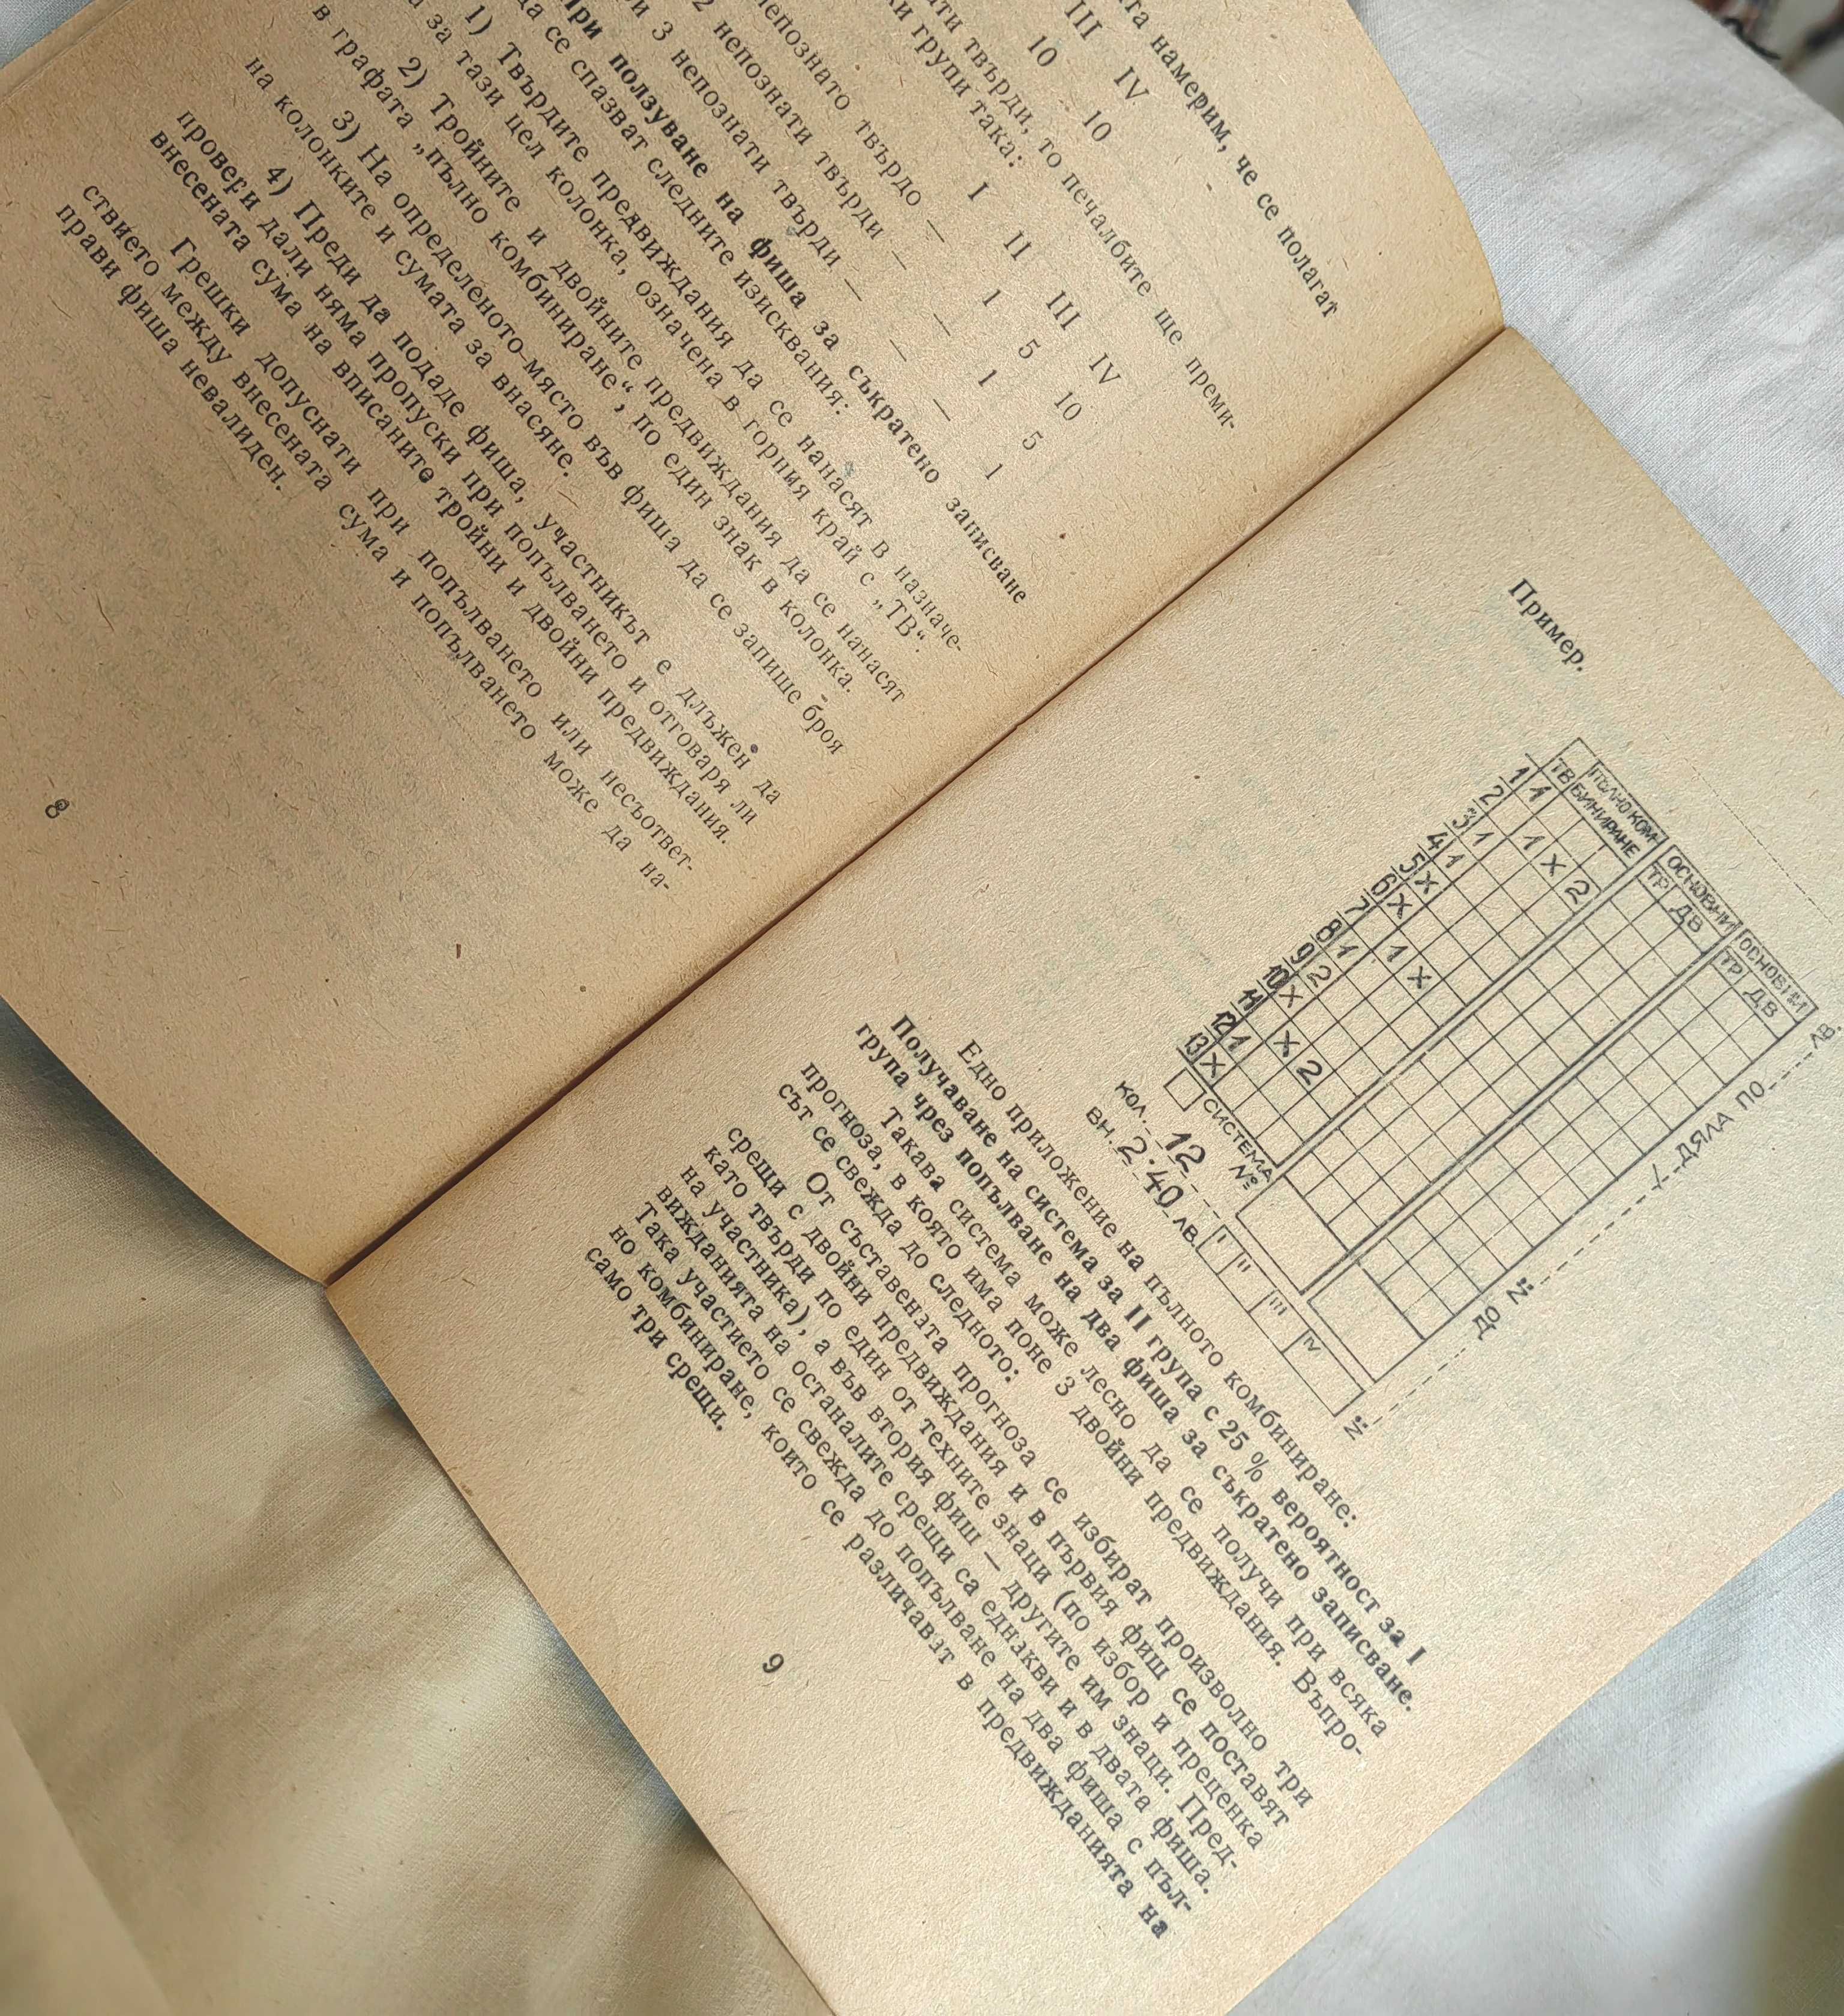 та намерим, че се полагат
III IV
10 10
ати твърди, то печалбите ще преми-
ки групи така:
I II III IV
непознато твърдо — 1 5 10
2 непознати твърди — — 1 5
ри 3 непознати твърди — — — 1
При ползуване на фиша за съкратено записване
да се спазват следните изисквания:
1) Твърдите предвиждания да се нанасят в назначе-
а за тази цел колонка, означена в горния край с „ТВ“.
2) Тройните и двойните предвиждания да се нанасят
в графата „пълно комбиниране“, по един знак в колонка.
3) На определеното място във фиша да се запише броя
на колонките и сумата за внасяне.
4) Преди да подаде фиша, участникът е длъжен да
провери дали няма пропуски при попълването и отговаря ли
внесената сума на вписаните тройни и двойни предвиждания.
Грешки допуснати при попълването или несъответ-
ствието между внесената сума и попълването може да на-
прави фиша невалиден.
8
Пример.
ПЪЛНО КОМ- ОСНОВНИ ОСНОВНИ
ТВ БИНИРАНЕ ТР ДВ ТР ДВ
1 1
2 1 X 2
3 1
4 1
5 X
6 X
7 1 X
8 1
9 2
10 X
11 X 2
12 1
13 X
СИСТЕМА №
КОЛ. 12
ВН. 2.40 ЛВ.
I II III IV
№ ДО № ДЯЛА ПО ЛВ.
Едно приложение на пълното комбиниране:
Получаване на система за II група с 25 % вероятност за I
група чрез попълване на два фиша за съкратено записване.
Такава система може лесно да се получи при всяка
прогноза, в която има поне 3 двойни предвиждания. Въпро-
сът се свежда до следното:
От съставената прогноза се избират произволно три
срещи с двойни предвиждания и в първия фиш се поставят
като твърди по един от техните знаци (по избор и преценка
на участника), а във втория фиш — другите им знаци. Пред-
вижданията на останалите срещи са еднакви и в двата фиша.
Така участието се свежда до попълване на два фиша с пъл-
но комбиниране, които се различават в предвижданията на
само три срещи.
9